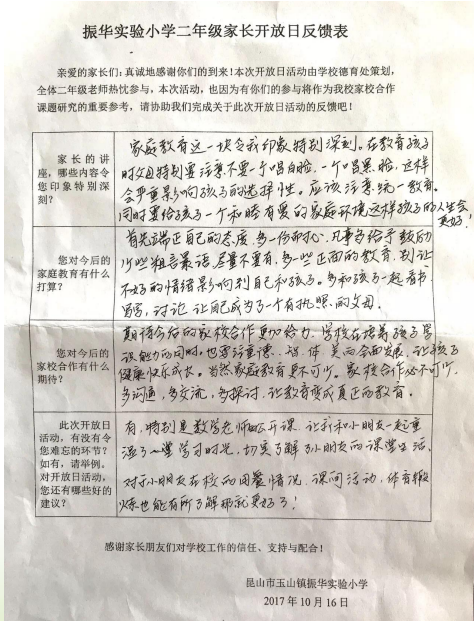 振华实验小学二年级家长开放日反馈表
亲爱的家长们:真诚地感谢你们的到来!本次开放日活动由学校德育处策划,
全体二年级老师热忱参与,本次活动,也因为有你们的参与将作为我校家校合作
课题研究的重要参考,请协助我们完成关于此次开放日活动的反馈吧!
家长的讲
座,哪些内容令
您印象特别深
刻?
家庭教育这一块令我印象特别深刻。在教育孩子
时父母特别要注意不要一个唱白脸,一个唱黑脸,这样
会严重影响孩子的选择性。应该注意统一教育。
同时要给孩子一个和睦有爱的家庭环境这样孩子的人生会
更好.
您对今后的
家庭教育有什么
打算?
首先端正自己的态度,多一份耐心,凡事多给予鼓励
少些粗言最语,尽量不要有,多一些正面的教育,别让
不好的情绪影响到自己和孩子。多和孩子一起看书
写字,讨论,让自己成为了一个有执照的父母.
您对今后的
家校合作有什么
期待?
期待今后的家校合作更加给力,学校在培养孩子学
识能力的同时,也要注重德、智、体、美的全面发展,让孩子
健康快乐成长。当然家庭教育是不可少,家校合作必不可少,
多沟通,多交流,多探讨,让教育变成真正的教育.
此次开放日
活动,有没有令
您难忘的环节?
如有,请举例。
对开放日活动,
您还有哪些好的
建议?
有,特别是数学老师的公开课,让我和小朋友一起重
温了一堂学习时光,切实了解了小朋友的课堂生活,
对于小朋友在校的用餐情况,课间活动,体育锻
炼也能有所了解那就更好了!
感谢家长朋友们对学校工作的信任、支持与配合!
昆山市玉山镇振华实验小学
2017年10月16日